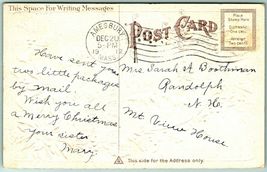 This Space For Writing Messages
AMESBURY
DEC 20
5-PM
19
MASS.
POST CARD
Place
Stamp Here
Domestic
One cent
Foreign
Two cents
Have sent you
two little packages
by mail.
Wish you all
a Merry Christmas
Your sister
Mary.
Mrs Sarah A Boothman
Randolph
N. H.
Mt View House
This side for the Address only.